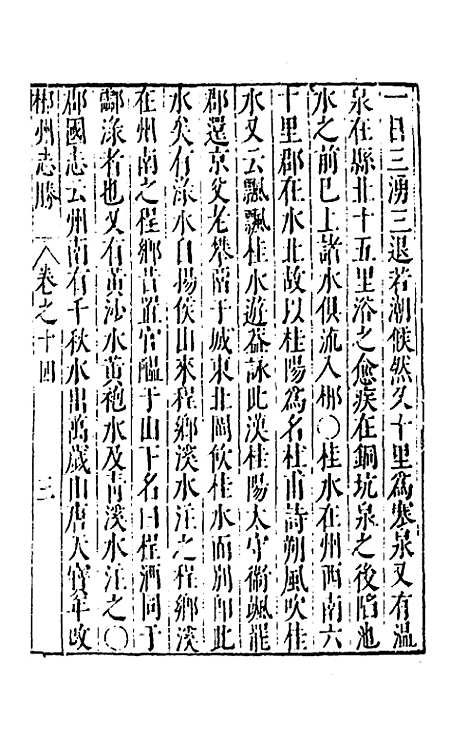 一日三湧三退若潮候然又十里爲寒泉又有溫
泉在縣北十五里浴之愈疾在銅坑泉之後陷池
水之前巳上諸水俱流入郴〇桂水在州西南六
十里郡在水北故以桂陽爲名杜甫詩朔風吹桂
水又云飄飄桂水遊益詠此漢桂陽太守衞颯罷
郡還京父老攀留于城東北岡飲桂水而別卽此
水矣有淥水自揚侯山來程鄉溪水注之程鄉溪
在州南之程鄉昔置官醞于山下名曰程酒同于
酃淥者也又有黃沙水黃袍水及靑溪水注之〇
郡國志云州南有千秋水出萬歲山唐天寶年改
郴州志勝 卷之十四 三